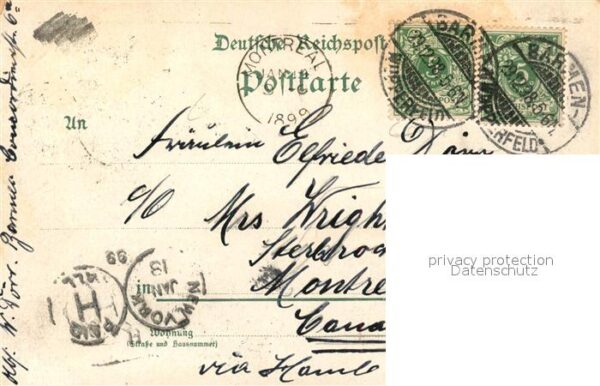 Deutsche Reichspost
Postkarte
MONTREAL
JAN
1899
BARMEN
29.12.98.5-6N.
BARMEN
29.12.98.5-6N.
ERFELD
An
Fräulein Elfriede
c/o Mrs Wrigh
Sterbroo
in Montre
Cana
via Hamb
Wohnung
(Straße und Hausnummer)
NEW YORK
JAN
13
99
PAID
H
ALL
Abs. W. Dörr. Barmen
privacy protection
Datenschutz